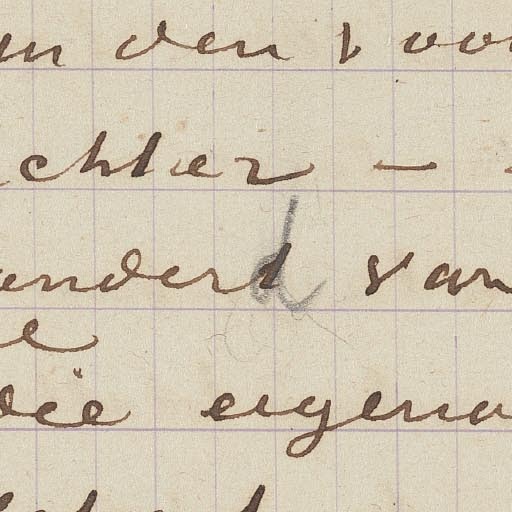 den voo
chter -
anderd van
die eigena